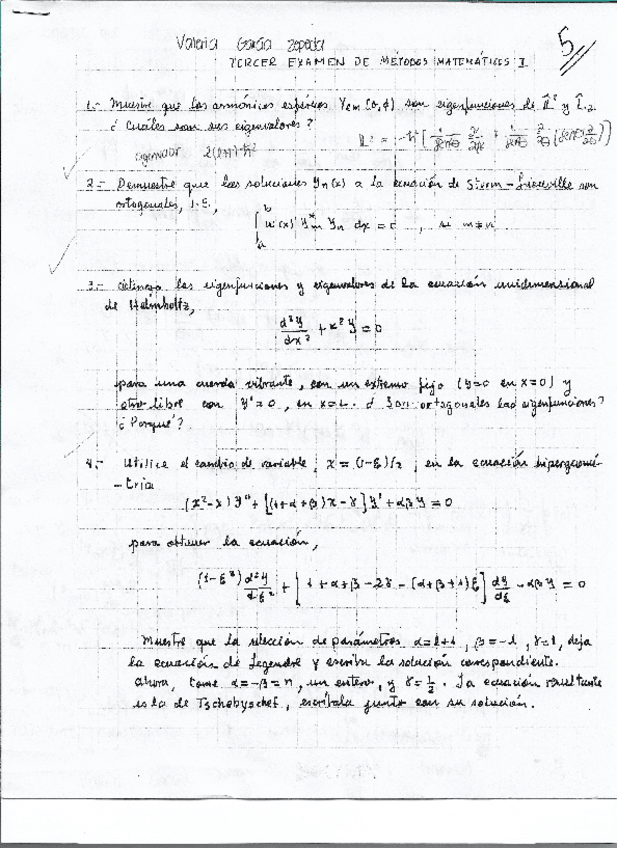 Valeria García Zepeda
5
TERCER EXAMEN DE METODOS MATEMÁTICOS I
1.- Muestre que los armónicos esféricos Yℓm(θ,φ) son eigenfunciones de L̂² y L̂z.
¿Cuáles son sus eigenvalores?
L² = -ħ² [ 1/sen²θ ∂²/∂φ² + 1/senθ ∂/∂θ (senθ ∂/∂θ) ]
eigenvalor ℓ(ℓ+1)ħ²
2.- Demuestre que las soluciones yn(x) a la ecuación de Sturm-Liouville son
ortogonales, i.e.,
∫ₐᵇ w(x) y*m yn dx = 0 , si m≠n
3.- Obtenga las eigenfunciones y eigenvalores de la ecuación unidimensional
de Helmholtz,
d²y/dx² + k²y = 0
para una cuerda vibrante, con un extremo fijo (y=0 en x=0) y
otro libre con y'=0, en x=L. ¿Son ortogonales las eigenfunciones?
¿Porqué?
4.- Utilice el cambio de variable, x = (1-ξ)/2, en la ecuación hipergeomé-
-trica
(x²-x)y'' + [(1+α+β)x-γ]y' + αβy = 0
para obtener la ecuación,
(1-ξ²) d²y/dξ² + [1+α+β-2γ-(α+β+1)ξ] dy/dξ - αβy = 0
Muestre que la selección de parámetros α=ℓ+1, β=-ℓ, γ=1, deja
la ecuación de Legendre y escriba la solución correspondiente.
Ahora, tome α=-β=n, un entero, y γ=1/2. La ecuación resultante
es la de Tschebyschef, escríbala junto con su solución.